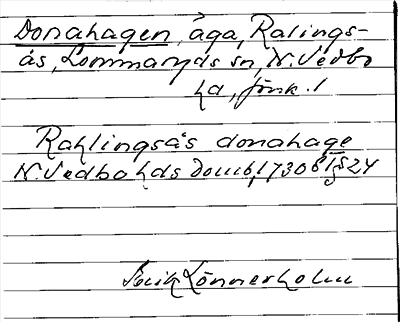 Donahagen, äga, Ralings-
ås, Lommaryds sn, N. Vedbo
hd, Jönk. l
Rahlingsås donahage
N. Vedbo hds domb, 1730 § 24
Erik Lönnerholm